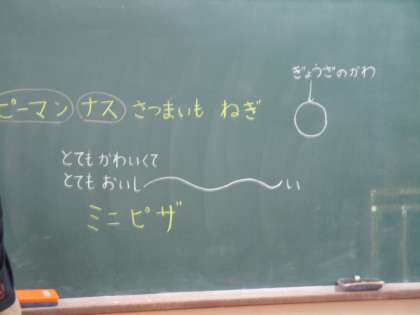 ぎょうざのかわ
ピーマン ナス さつまいも ねぎ
とてもかわいくて
とてもおいし〜い
ミニピザ